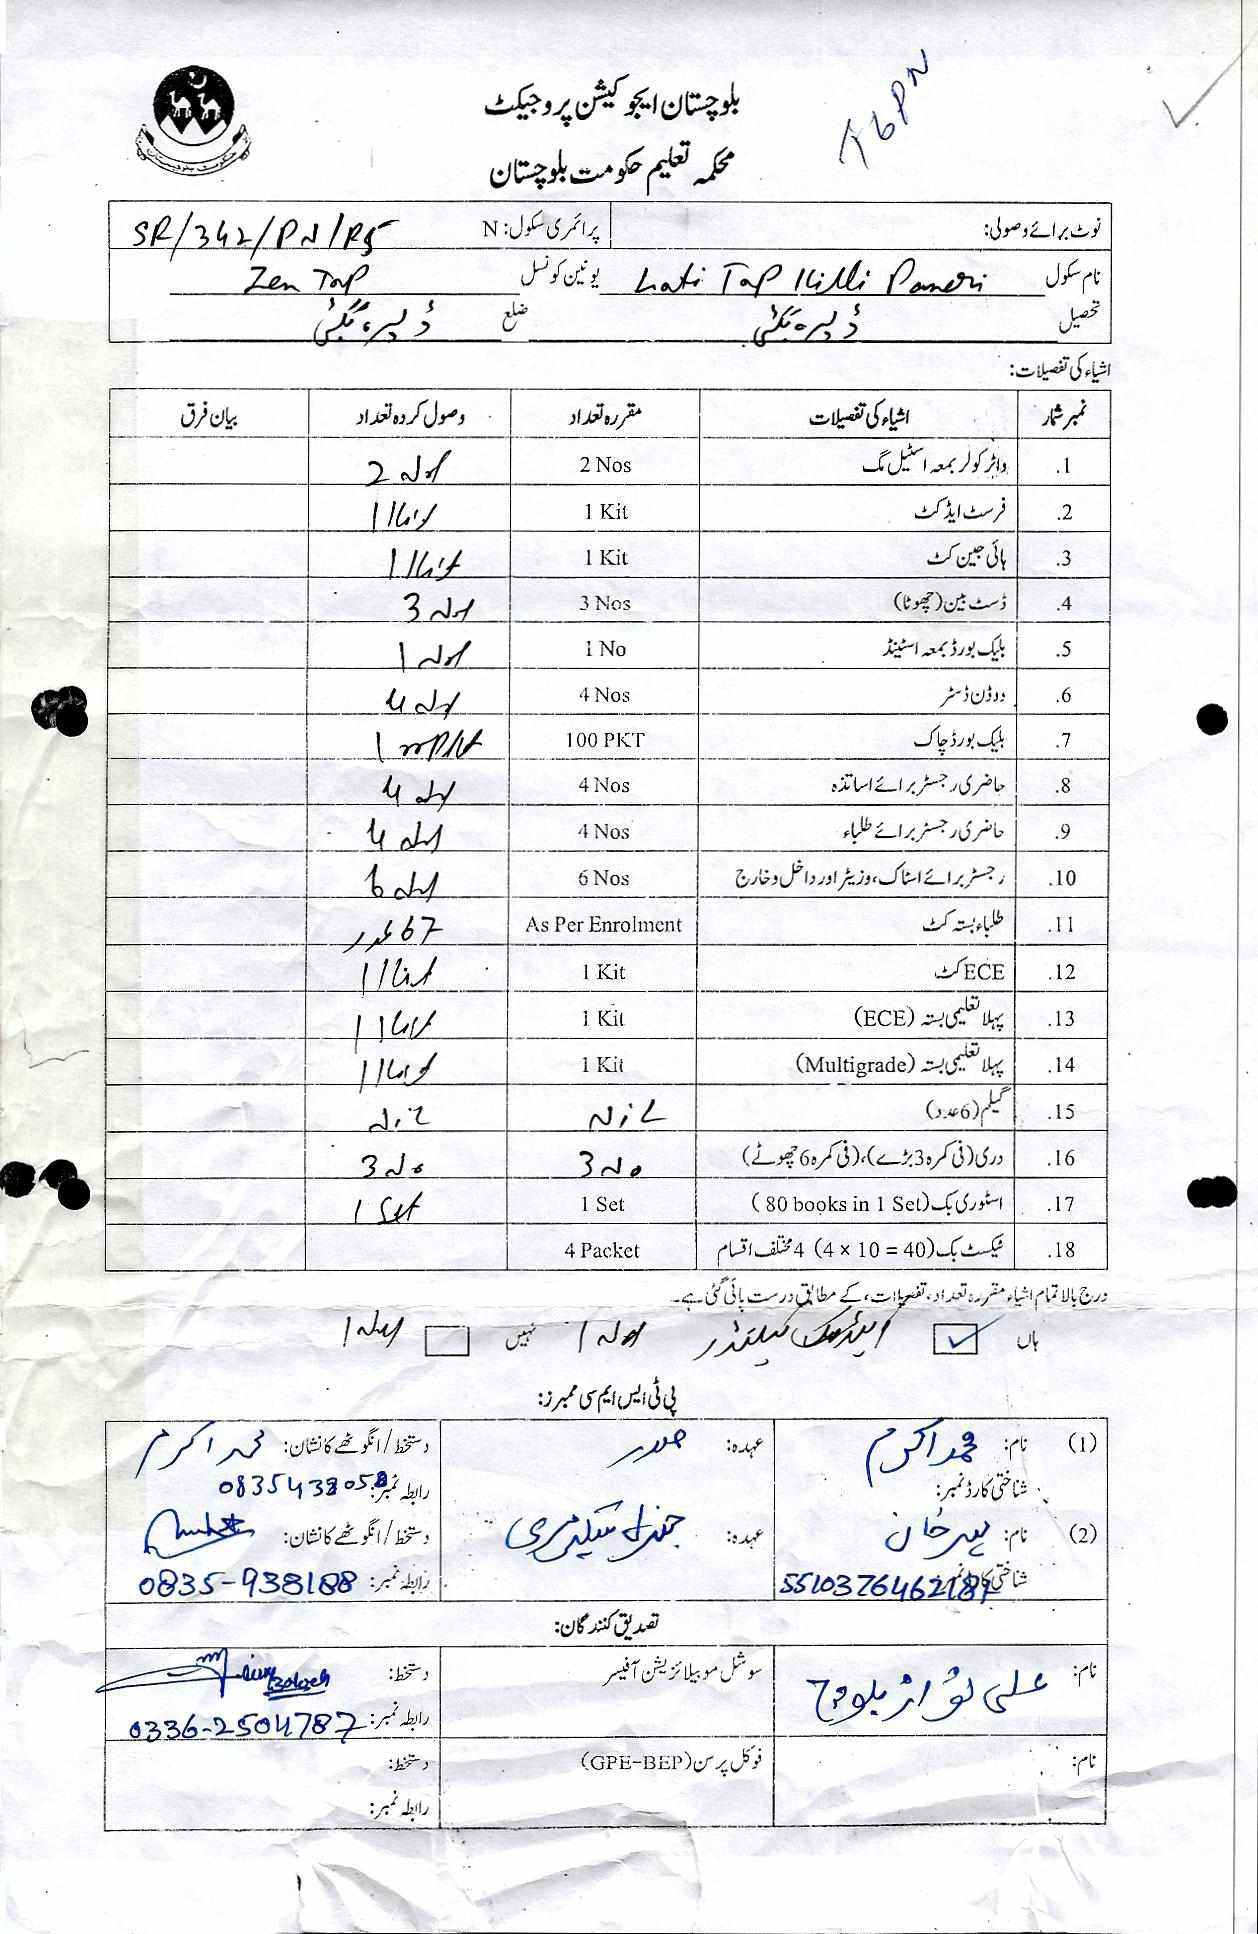 بلوچستان ایجوکیشن پروجیکٹ
محکمہ تعلیم حکومت بلوچستان
حکومت بلوچستان
نوٹ برائے وصولی: پرائمری سکول: N SR/342/PN/R5
نام سکول Lati Tap Killi Pameri یونین کونسل Zen Tap
تحصیل ڈیرہ بگٹی ضلع ڈیرہ بگٹی
اشیاء کی تفصیلات:
نمبر شمار اشیاء کی تفصیلات مقررہ تعداد وصول کردہ تعداد بیان فرق
1. واٹر کولر بمعہ اسٹیل مگ 2 Nos 2 Nos
2. فرسٹ ایڈ کٹ 1 Kit 1 Kit
3. ہائی جین کٹ 1 Kit 1 Kit
4. ڈسٹ بین (چھوٹا) 3 Nos 3 Nos
5. بلیک بورڈ بمعہ اسٹینڈ 1 No 1 No
6. ووڈن ڈسٹر 4 Nos 4 Nos
7. بلیک بورڈ چاک 100 PKT 100 PKT
8. حاضری رجسٹر برائے اساتذہ 4 Nos 4 Nos
9. حاضری رجسٹر برائے طلباء 4 Nos 4 Nos
10. رجسٹر برائے اسٹاک، وزیٹر اور داخل و خارج 6 Nos 6 Nos
11. طلباء بستہ کٹ As Per Enrolment 67 عدد
12. ECE کٹ 1 Kit 1 Kit
13. پہلا تعلیمی بستہ (ECE) 1 Kit 1 Kit
14. پہلا تعلیمی بستہ (Multigrade) 1 Kit 1 Kit
15. گیلم (6 عدد) Nil Nil
16. دری (فی کمرہ 3 بڑے)، (فی کمرہ 6 چھوٹے) 3 No 3 No
17. اسٹوری بک (80 books in 1 Set) 1 Set 1 Set
18. ٹیکسٹ بک (4 × 10 = 40) 4 مختلف اقسام 4 Packet
درج بالا تمام اشیاء مقررہ تعداد، تفصیلات، کے مطابق درست پائی گئی ہے۔
ہاں ✓ کیلنڈر 1 No نہیں 1 No
پی ٹی ایس ایم سی ممبرز:
(1) نام: محمد اکرم عہدہ: صدر دستخط/انگوٹھے کا نشان: محمد اکرم
شناختی کارڈ نمبر: رابطہ نمبر: 0835438058
(2) نام: پیر خان عہدہ: جنرل سیکٹری دستخط/انگوٹھے کا نشان:
شناختی کارڈ نمبر: 5510376462181 رابطہ نمبر: 0835-938188
تصدیق کنندگان:
نام: علی نواز بلوچ سوشل موبیلائزیشن آفیسر دستخط: Baloch
رابطہ نمبر: 0336-2504787
نام: فوکل پرسن (GPE-BEP) دستخط:
رابطہ نمبر: